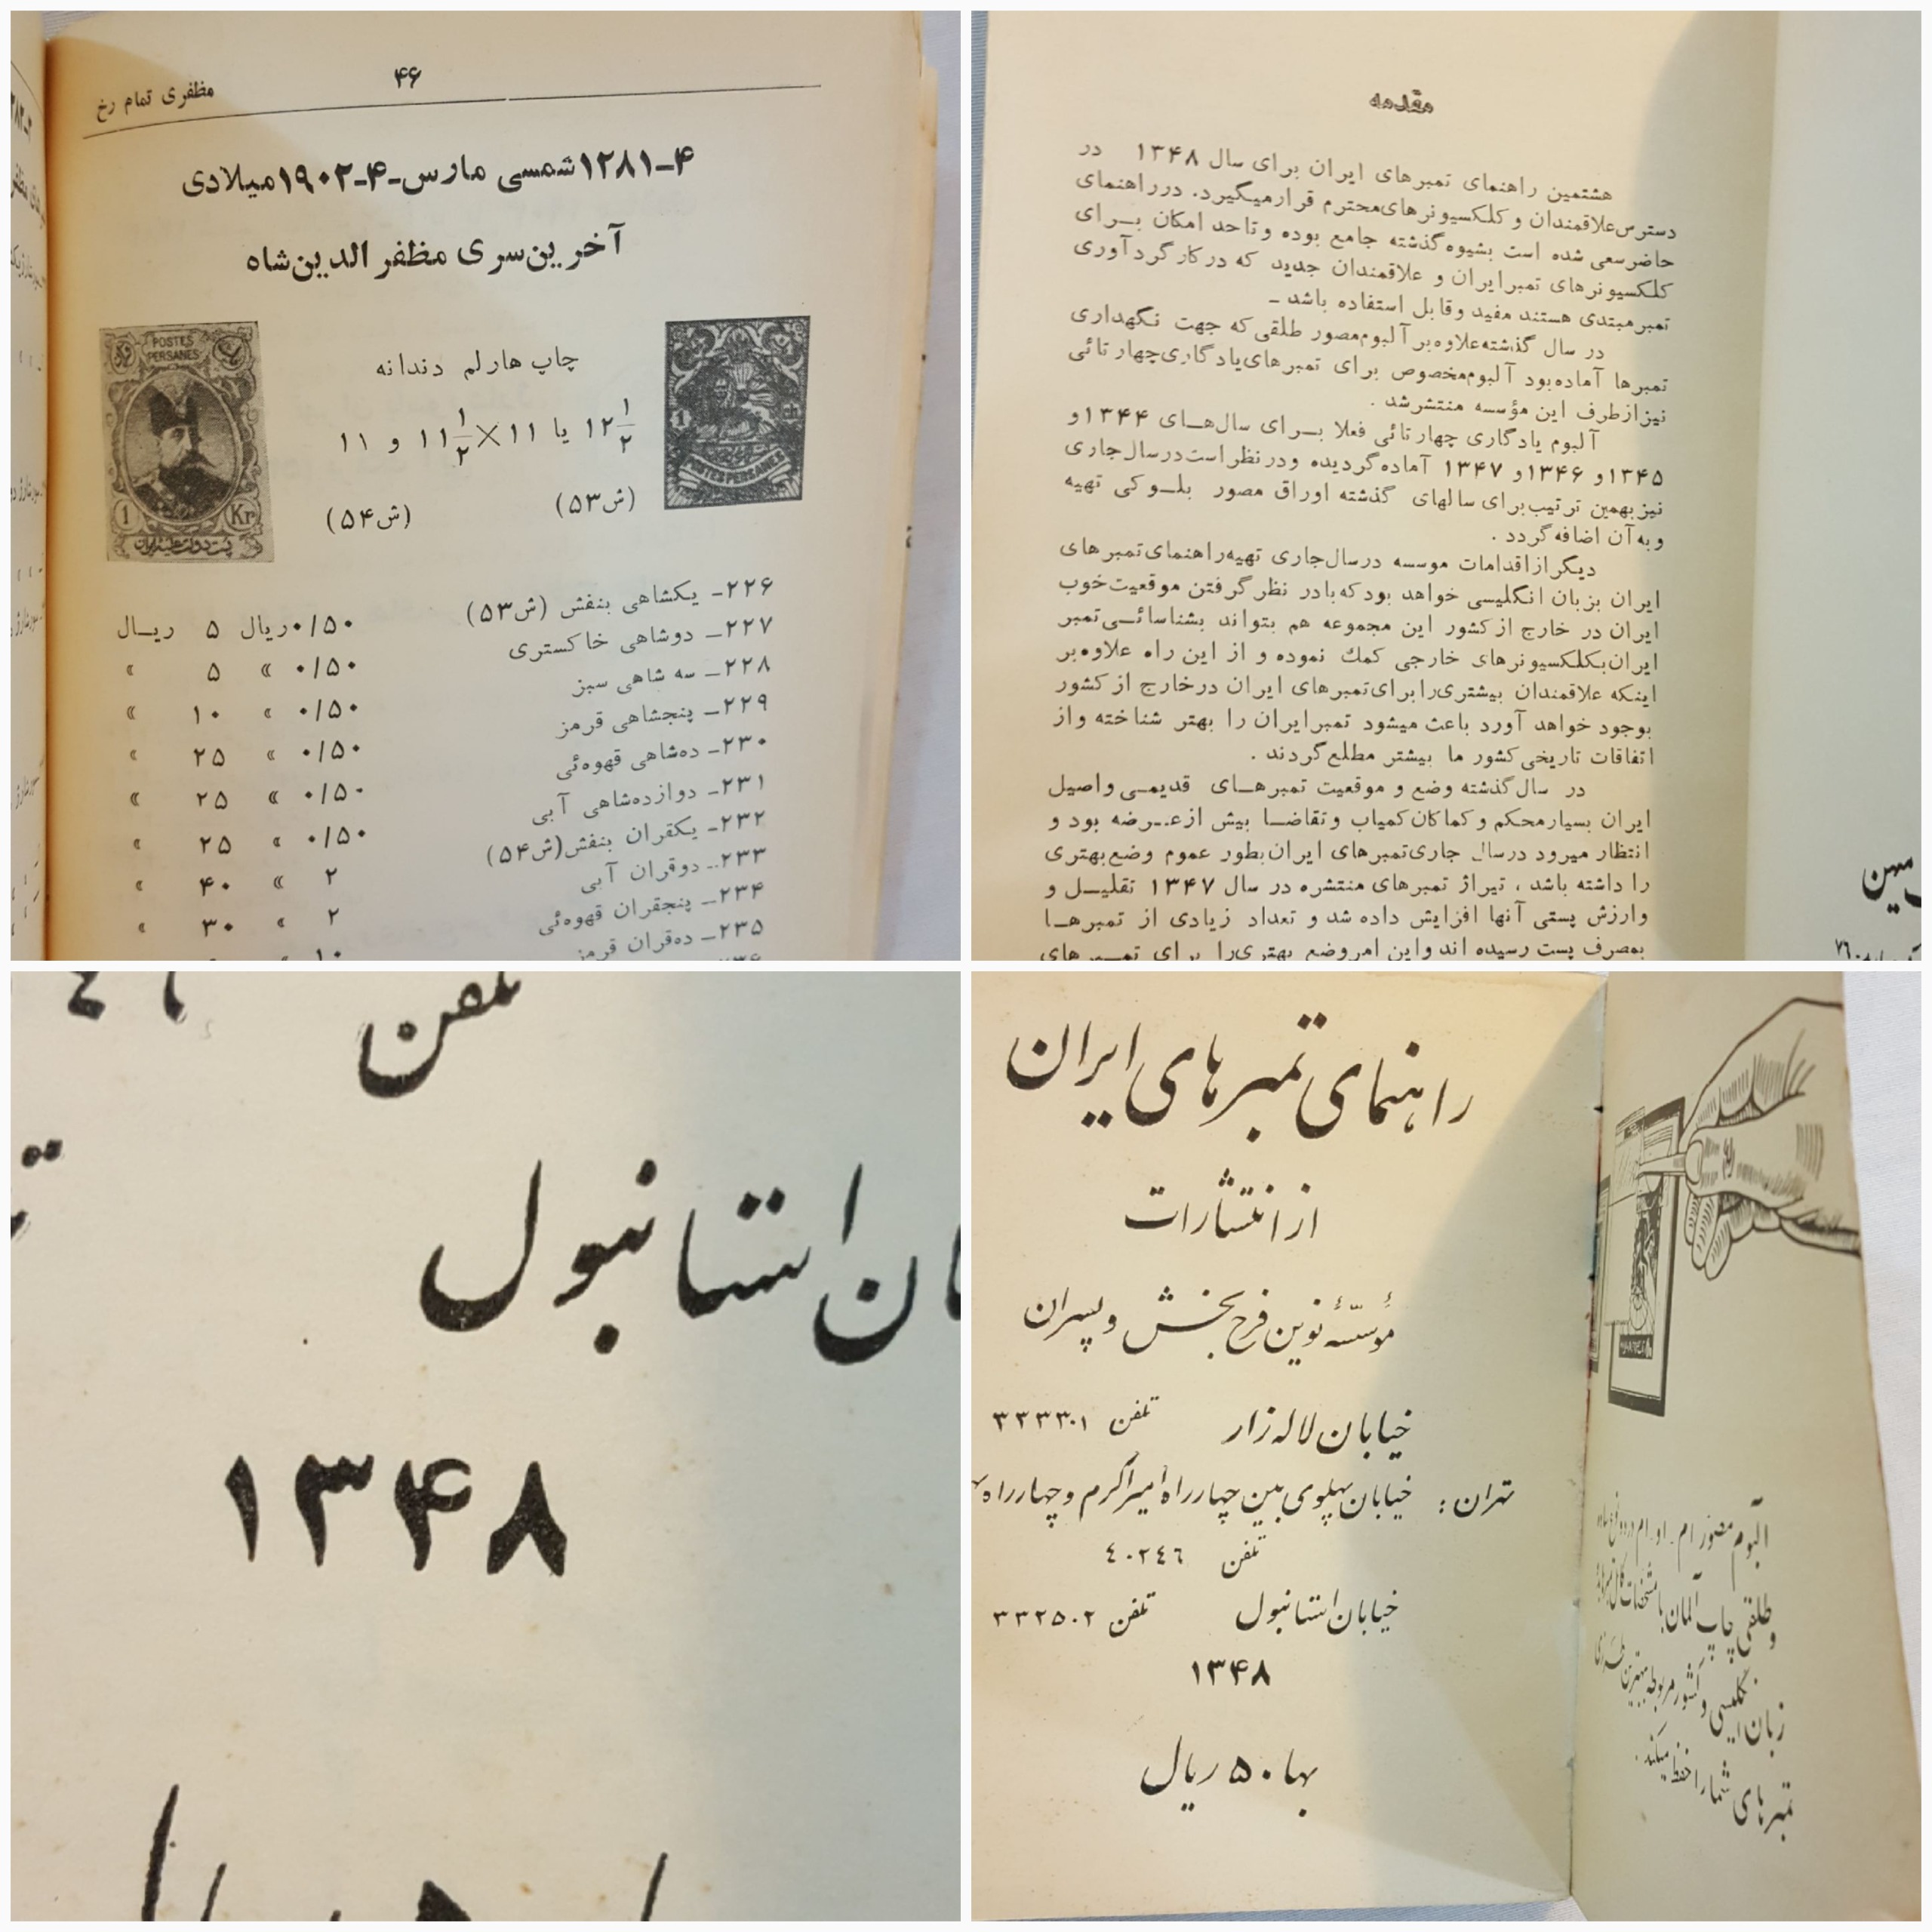 ۴۶
مظفری تمام رخ
۴-۱۲۸۱شمسی مارس-۴-۱۹۰۲میلادی
آخرین‌سری مظفر الدین‌شاه
POSTES
PERSANES
1 Kr
1 ch
POSTES PERSANES
چاپ هارلم دندانه
۱۲ ۱/۲ یا ۱۱×۱۱ ۱/۲ و ۱۱
(ش۵۳)
(ش۵۴)
۲۲۶- یکشاهی بنفش (ش۵۳) ۰/۵۰ریال ۵ ریــال
۲۲۷- دوشاهی خاکستری ۰/۵۰ » ۵ »
۲۲۸- سه شاهی سبز ۰/۵۰ » ۱۰ »
۲۲۹- پنجشاهی قرمز ۰/۵۰ » ۲۵ »
۲۳۰- ده‌شاهی قهوه‌ئی ۰/۵۰ » ۲۵ »
۲۳۱- دوازده‌شاهی آبی ۰/۵۰ » ۲۵ »
۲۳۲- یکقران بنفش(ش۵۴) ۲ » ۴۰ »
۲۳۳- دوقران آبی ۲ » ۳۰ »
۲۳۴- پنجقران قهوه‌ئی ۱۰
۲۳۵- ده‌قران قرمز
مقدمه
هشتمین راهنمای تمبرهای ایران برای سال ۱۳۴۸ در
دسترس‌علاقمندان و کلکسیونرهای‌محترم قرارمیگیرد. درراهنمای
حاضرسعی شده است بشیوه‌گذشته جامع بوده وتاحد امکان بــرای
کلکسیونرهای تمبرایران و علاقمندان جدید که درکارگردآوری
تمبرمبتدی هستند مفید وقابل استفاده باشد ـ
در سال گذشته‌علاوه‌بر آلبوم‌مصور طلقی‌که جهت نگهداری
تمبرها آماده‌بود آلبوم‌مخصوص برای تمبرهای‌یادگاری‌چهارتائی
نیزازطرف این مؤسسه منتشرشد .
آلبوم یادگاری چهارتائی فعلا بــرای سال‌هــای ۱۳۴۴و
۱۳۴۵و ۱۳۴۶و ۱۳۴۷ آماده‌گردیده ودرنظراست‌درسال‌جاری
نیزبهمین ترتیب‌برای سالهای گذشته اوراق مصور بلــوکی تهیه
وبه‌آن اضافه‌گردد .
دیگرازاقدامات موسسه درسال‌جاری تهیه‌راهنمای‌تمبرهای
ایران بزبان انگلیسی خواهد بودکه‌بادر نظرگرفتن موقعیت‌خوب
ایران در خارج ازکشور این مجموعه هم بتواند بشناسائــی‌تمبر
ایران‌بکلکسیونرهای خارجی کمك نموده و از این راه علاوه‌بر
اینکه علاقمندان بیشتری‌رابرای‌تمبرهای ایران درخارج ازکشور
بوجود خواهد آورد باعث میشود تمبرایران را بهتر شناخته واز
اتفاقات تاریخی‌کشور ما بیشتر مطلع‌گردند .
در سال‌گذشته وضع و موقعیت تمبرهــای قدیمــی واصیل
ایران بسیارمحکم وکماکان‌کمیاب وتقاضــا بیش ازعــرضه بود و
انتظار میرود درسال جاری‌تمبرهای ایران‌بطور عموم وضع‌بهتری
را داشته باشد ، تیراژ تمبرهای منتشره در سال ۱۳۴۷ تقلیــل و
وارزش پستی آنها افزایش داده شد و تعداد زیادی از تمبرهــا
بمصرف پست رسیده اند واین امروضع بهتری‌را برای تمبــرهای
میهن
۷۶
تلفن
ان استانبول
۱۳۴۸
راهنمای تمبرهای ایران
از انتشارات
مؤسسهٔ نوین فرح بخش و پسران
خیابان لاله زار تلفن ۳۳۳۳۰۱
تهران : خیابان پهلوی بین چهارراه امیراکرم و چهارراه
تلفن ٤٠٢٤٦
خیابان استانبول تلفن ۳۳۲۵۰۲
۱۳۴۸
بها ۵۰ ریال
آلبوم مصور ام . او . ام در دو نوع ساده
و طلقی چاپ آلمان با مشخصات کامل
زبان انگلیسی و کشور مربوطه بهترین
تمبرهای شما را حفظ میکند .